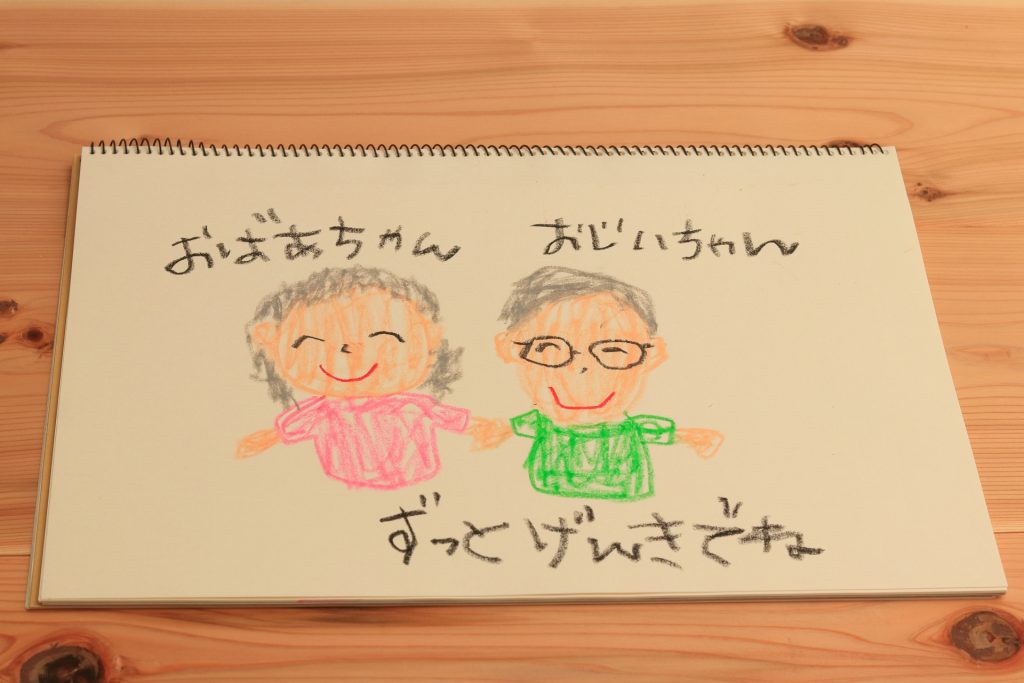 おばあちゃん
おじいちゃん
ずっとげんきでね